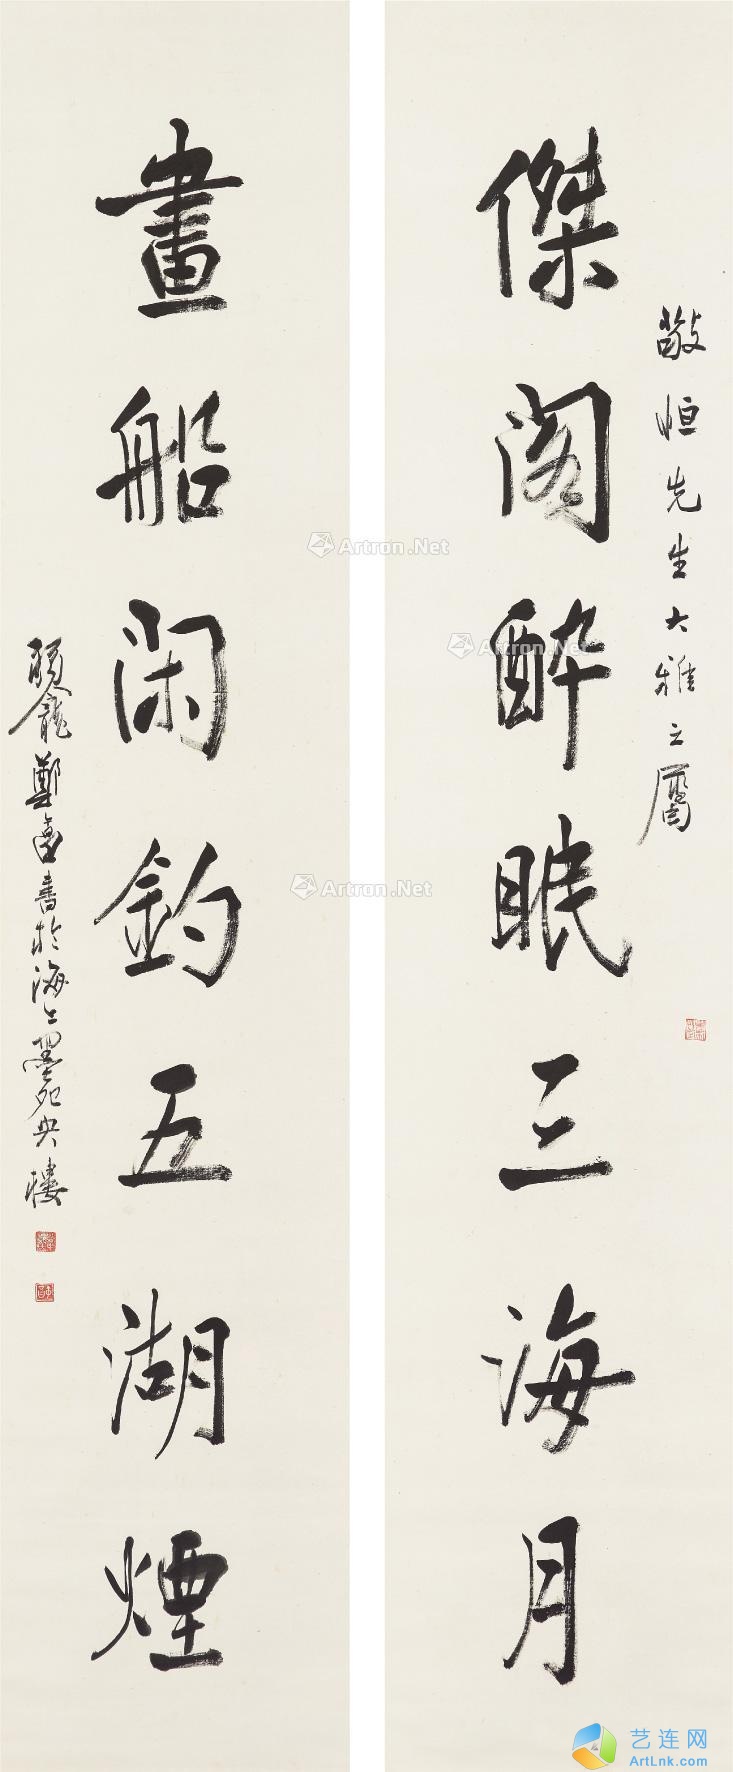 傑閣醉眠三海月
敬恒先生大雅之屬
畫船闲釣五湖煙
鄭書於海上墨央樓
Artron.Net
Artron.Net
Artron.Net
艺连网
ArtLnk.com